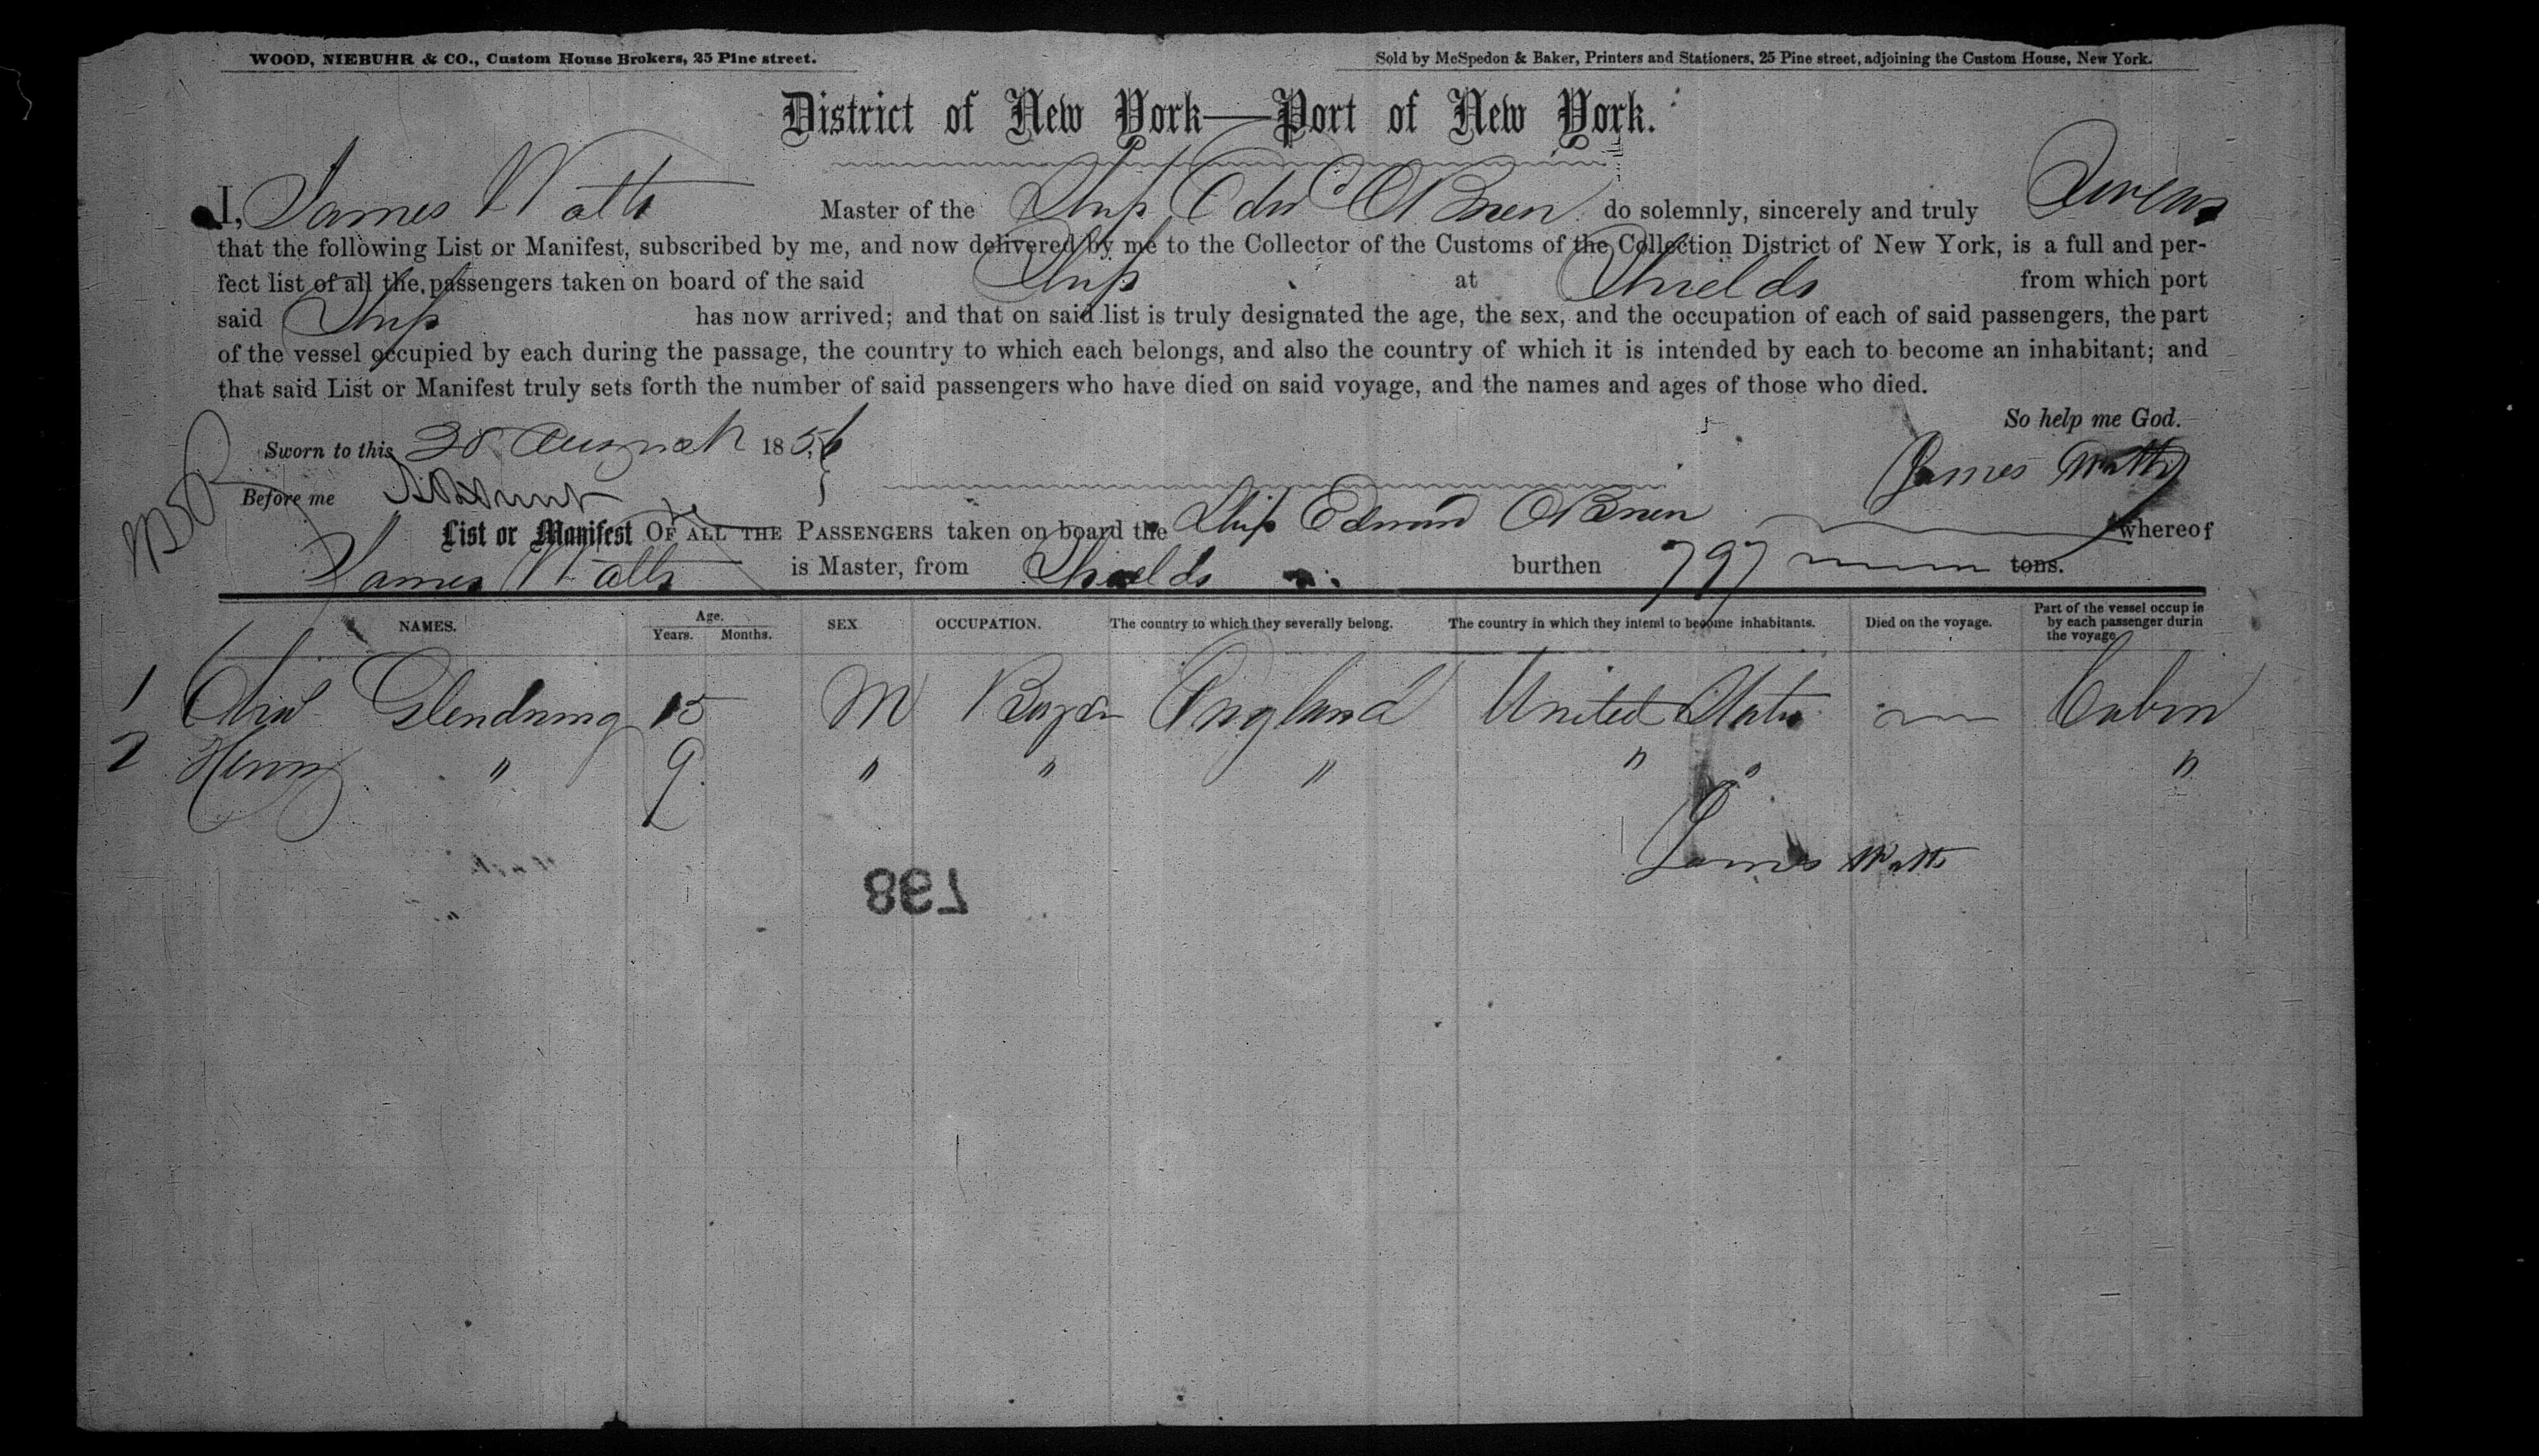 WOOD, NIEBUHR & CO., Custom House Brokers, 25 Pine street.
Sold by McSpedon & Baker, Printers and Stationers, 25 Pine street, adjoining the Custom House, New York.
District of New York—Port of New York.
I, James Watts Master of the Ship Edwd OBrien do solemnly, sincerely and truly Swear
that the following List or Manifest, subscribed by me, and now delivered by me to the Collector of the Customs of the Collection District of New York, is a full and per-
fect list of all the passengers taken on board of the said Ship at Shields from which port
said Ship has now arrived; and that on said list is truly designated the age, the sex, and the occupation of each of said passengers, the part
of the vessel occupied by each during the passage, the country to which each belongs, and also the country of which it is intended by each to become an inhabitant; and
that said List or Manifest truly sets forth the number of said passengers who have died on said voyage, and the names and ages of those who died.
So help me God.
Sworn to this August 1856
James Watts
Before me
List or Manifest OF ALL THE PASSENGERS taken on board the Ship Edward OBrien whereof
James Watts is Master, from Shields burthen 797 tons.
NAMES. Age. Years. Months. SEX OCCUPATION. The country to which they severally belong. The country in which they intend to become inhabitants. Died on the voyage. Part of the vessel occup in by each passenger durin the voyage.
1 Glendning 15 M England United States Cabin
2 Henry " 9 " " " " " "
James Watts
867